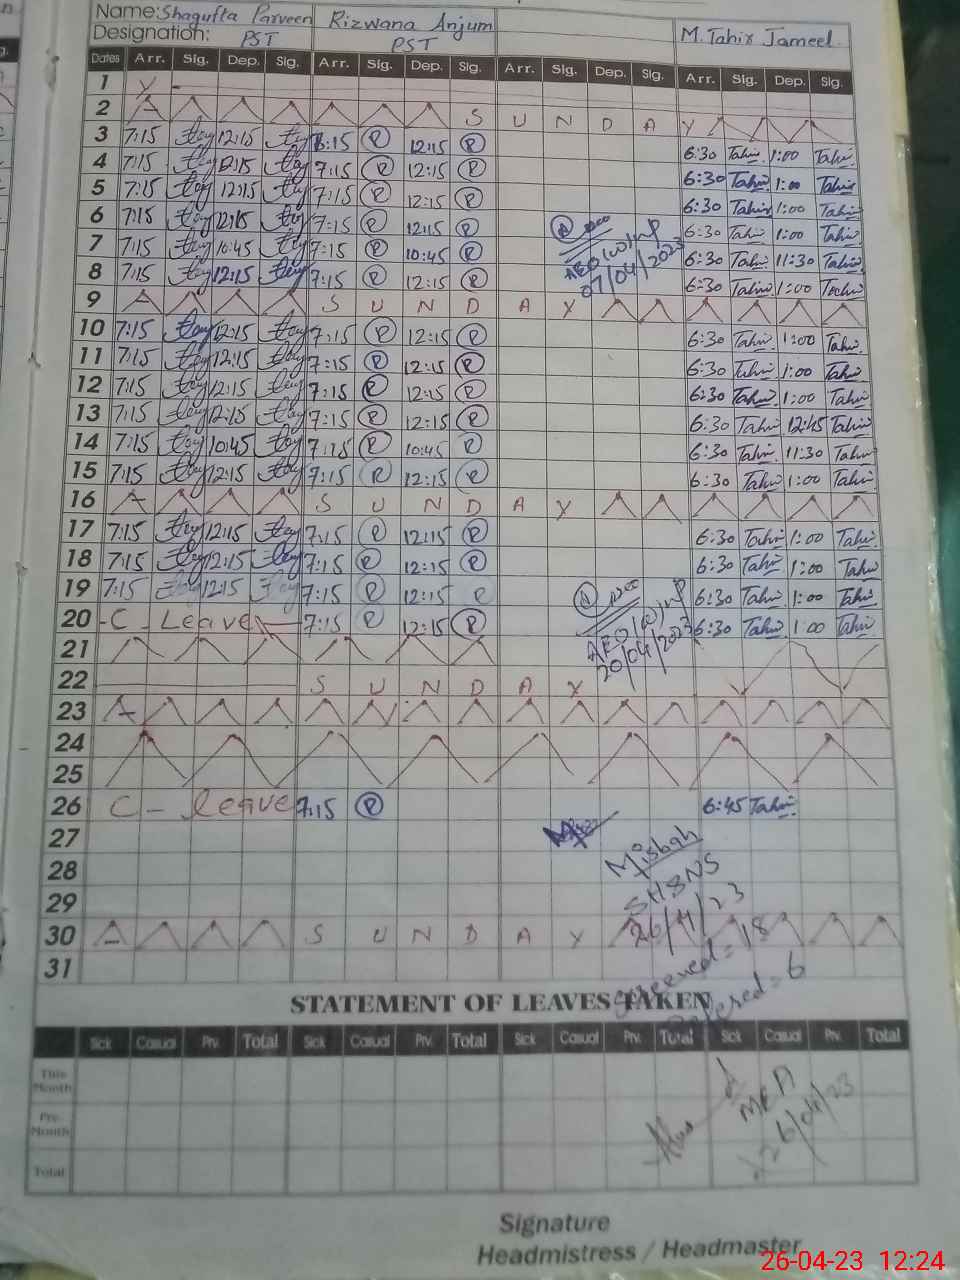 Name: Shagufta Parveen Rizwana Anjum M. Tahir Jameel.
Designation: PST PST
Dates Arr. Sig. Dep. Sig. Arr. Sig. Dep. Sig. Arr. Sig. Dep. Sig. Arr. Sig. Dep. Sig.
1
2 S U N D A Y
3 7:15 12:15 8:15 R 12:15 R 6:30 Tahir 1:00 Tahir
4 7:15 12:15 7:15 R 12:15 R 6:30 Tahir 1:00 Tahir
5 7:15 12:15 7:15 R 12:15 R 6:30 Tahir 1:00 Tahir
6 7:15 12:15 7:15 R 12:15 R 6:30 Tahir 1:00 Tahir
7 7:15 10:45 7:15 R 10:45 R AEO(W) 6:30 Tahir 11:30 Tahir
8 7:15 12:15 7:15 R 12:15 R 07/04/2023 6:30 Tahir 1:00 Tahir
9 S U N D A Y
10 7:15 12:15 7:15 R 12:15 R 6:30 Tahir 1:00 Tahir
11 7:15 12:15 7:15 R 12:15 R 6:30 Tahir 1:00 Tahir
12 7:15 12:15 7:15 R 12:15 R 6:30 Tahir 1:00 Tahir
13 7:15 12:15 7:15 R 12:15 R 6:30 Tahir 12:45 Tahir
14 7:15 10:45 7:15 R 10:45 R 6:30 Tahir 11:30 Tahir
15 7:15 12:15 7:15 R 12:15 R 6:30 Tahir 1:00 Tahir
16 S U N D A Y
17 7:15 12:15 7:15 R 12:15 R 6:30 Tahir 1:00 Tahir
18 7:15 12:15 7:15 R 12:15 R 6:30 Tahir 1:00 Tahir
19 7:15 12:15 7:15 R 12:15 R 6:30 Tahir 1:00 Tahir
20 - C - Leave 7:15 R 12:15 R AEO(W) 6:30 Tahir 1:00 Tahir
21 20/04/2023
22 S U N D A Y
23
24
25
26 C - leave 7:15 R 6:45 Tahir
27
28 Misbah
29 SH&NS
30 S U N D A Y 26/4/23
31 Screened = 18
STATEMENT OF LEAVES TAKEN
Refered = 6
Sick Casual Prv. Total Sick Casual Prv. Total Sick Casual Prv. Total Sick Casual Prv. Total
This Month
Pre. Month MEA
Total 26/04/23
Signature
Headmistress / Headmaster
26-04-23 12:24